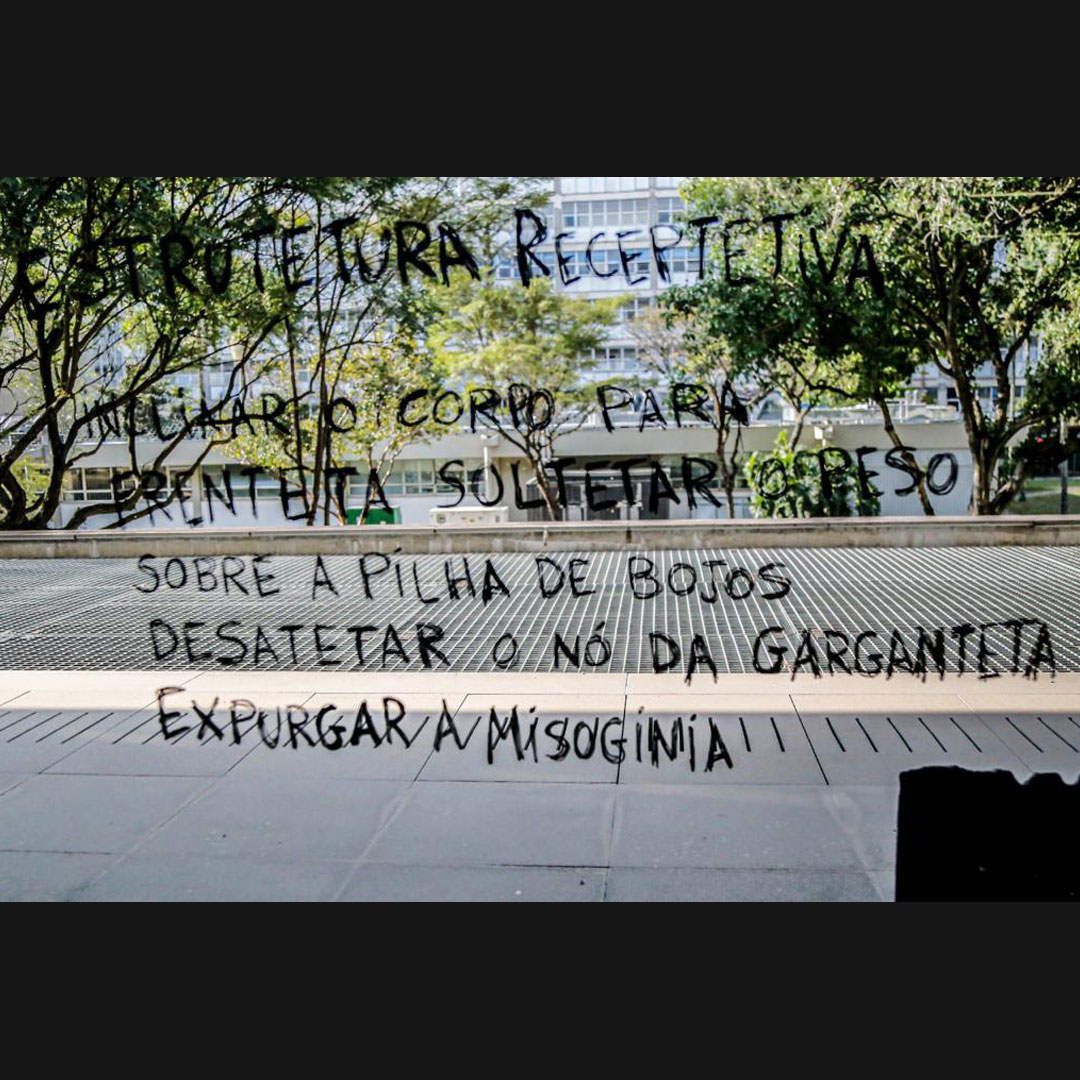 ESTRUTETURA RECEPTETIVA
INCLINAR O CORPO PARA
FRENTETA SOLTETAR O PESO
SOBRE A PILHA DE BOJOS
DESATETAR O NÓ DA GARGANTETA
EXPURGAR A MISOGINIA